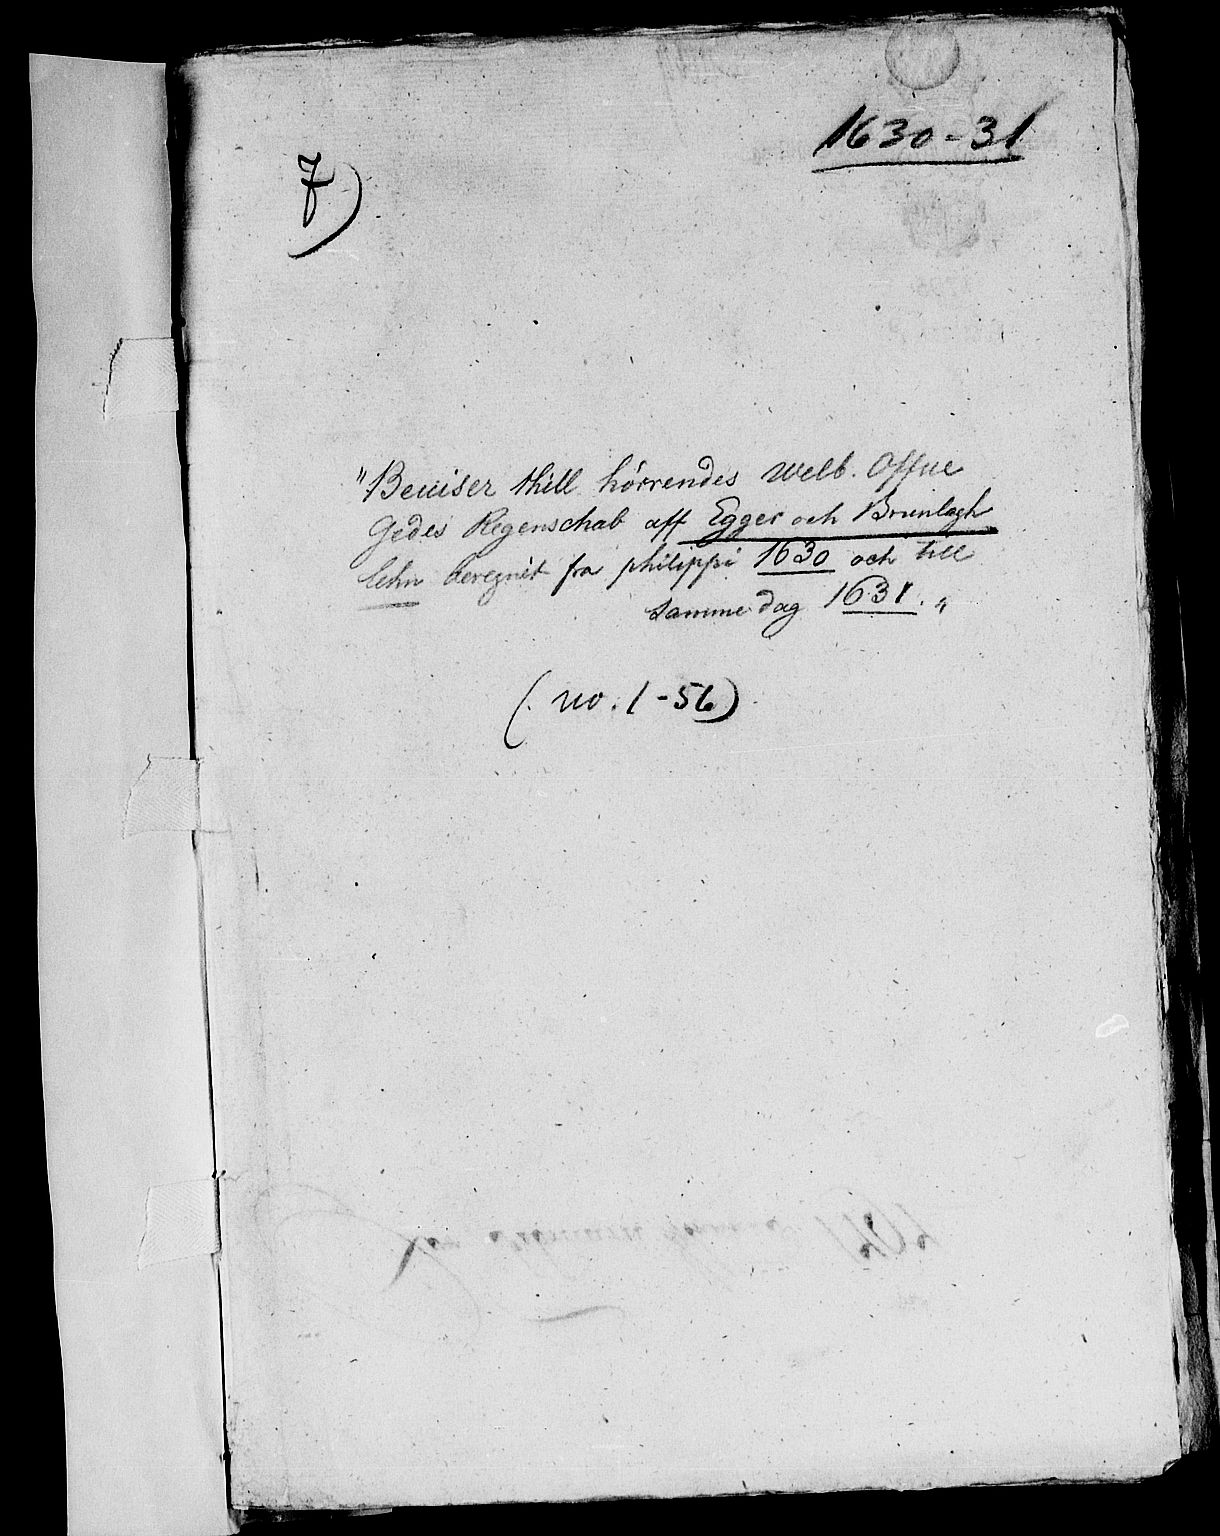 1630-31
7)
"Beuiser thill hörrendes welb. Offue
Gedes Regenschab aff Egger och Brunlagh
lehn beregnet fra philippi 1630 och till
samme dag 1631."
(. no. 1-56)